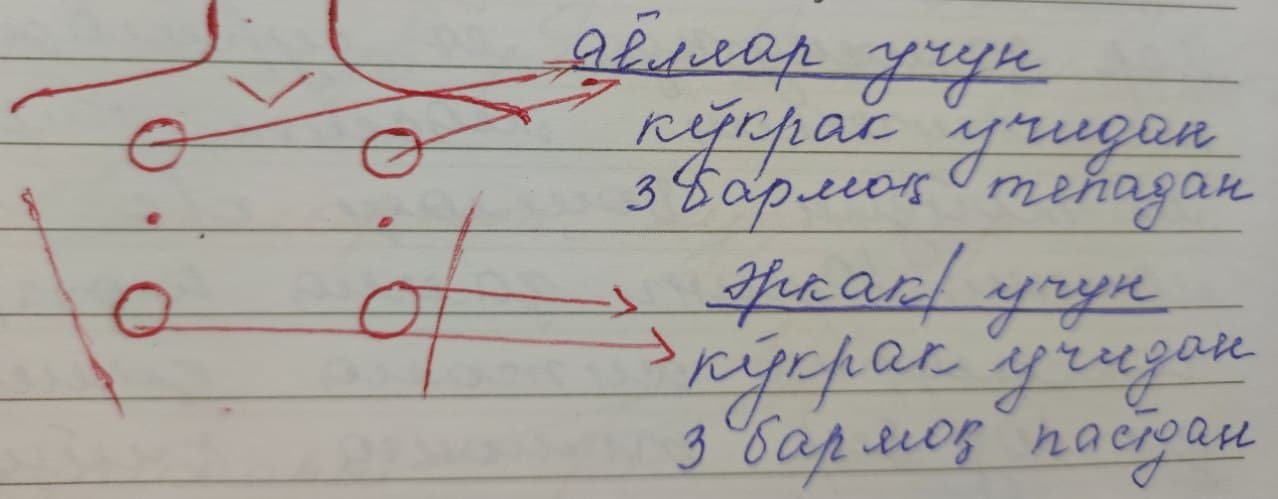 аёллар учун
кўкрак учидан
3 бармоқ тепадан
Эркак/ учун
кўкрак учидан
3 бармоқ пастдан